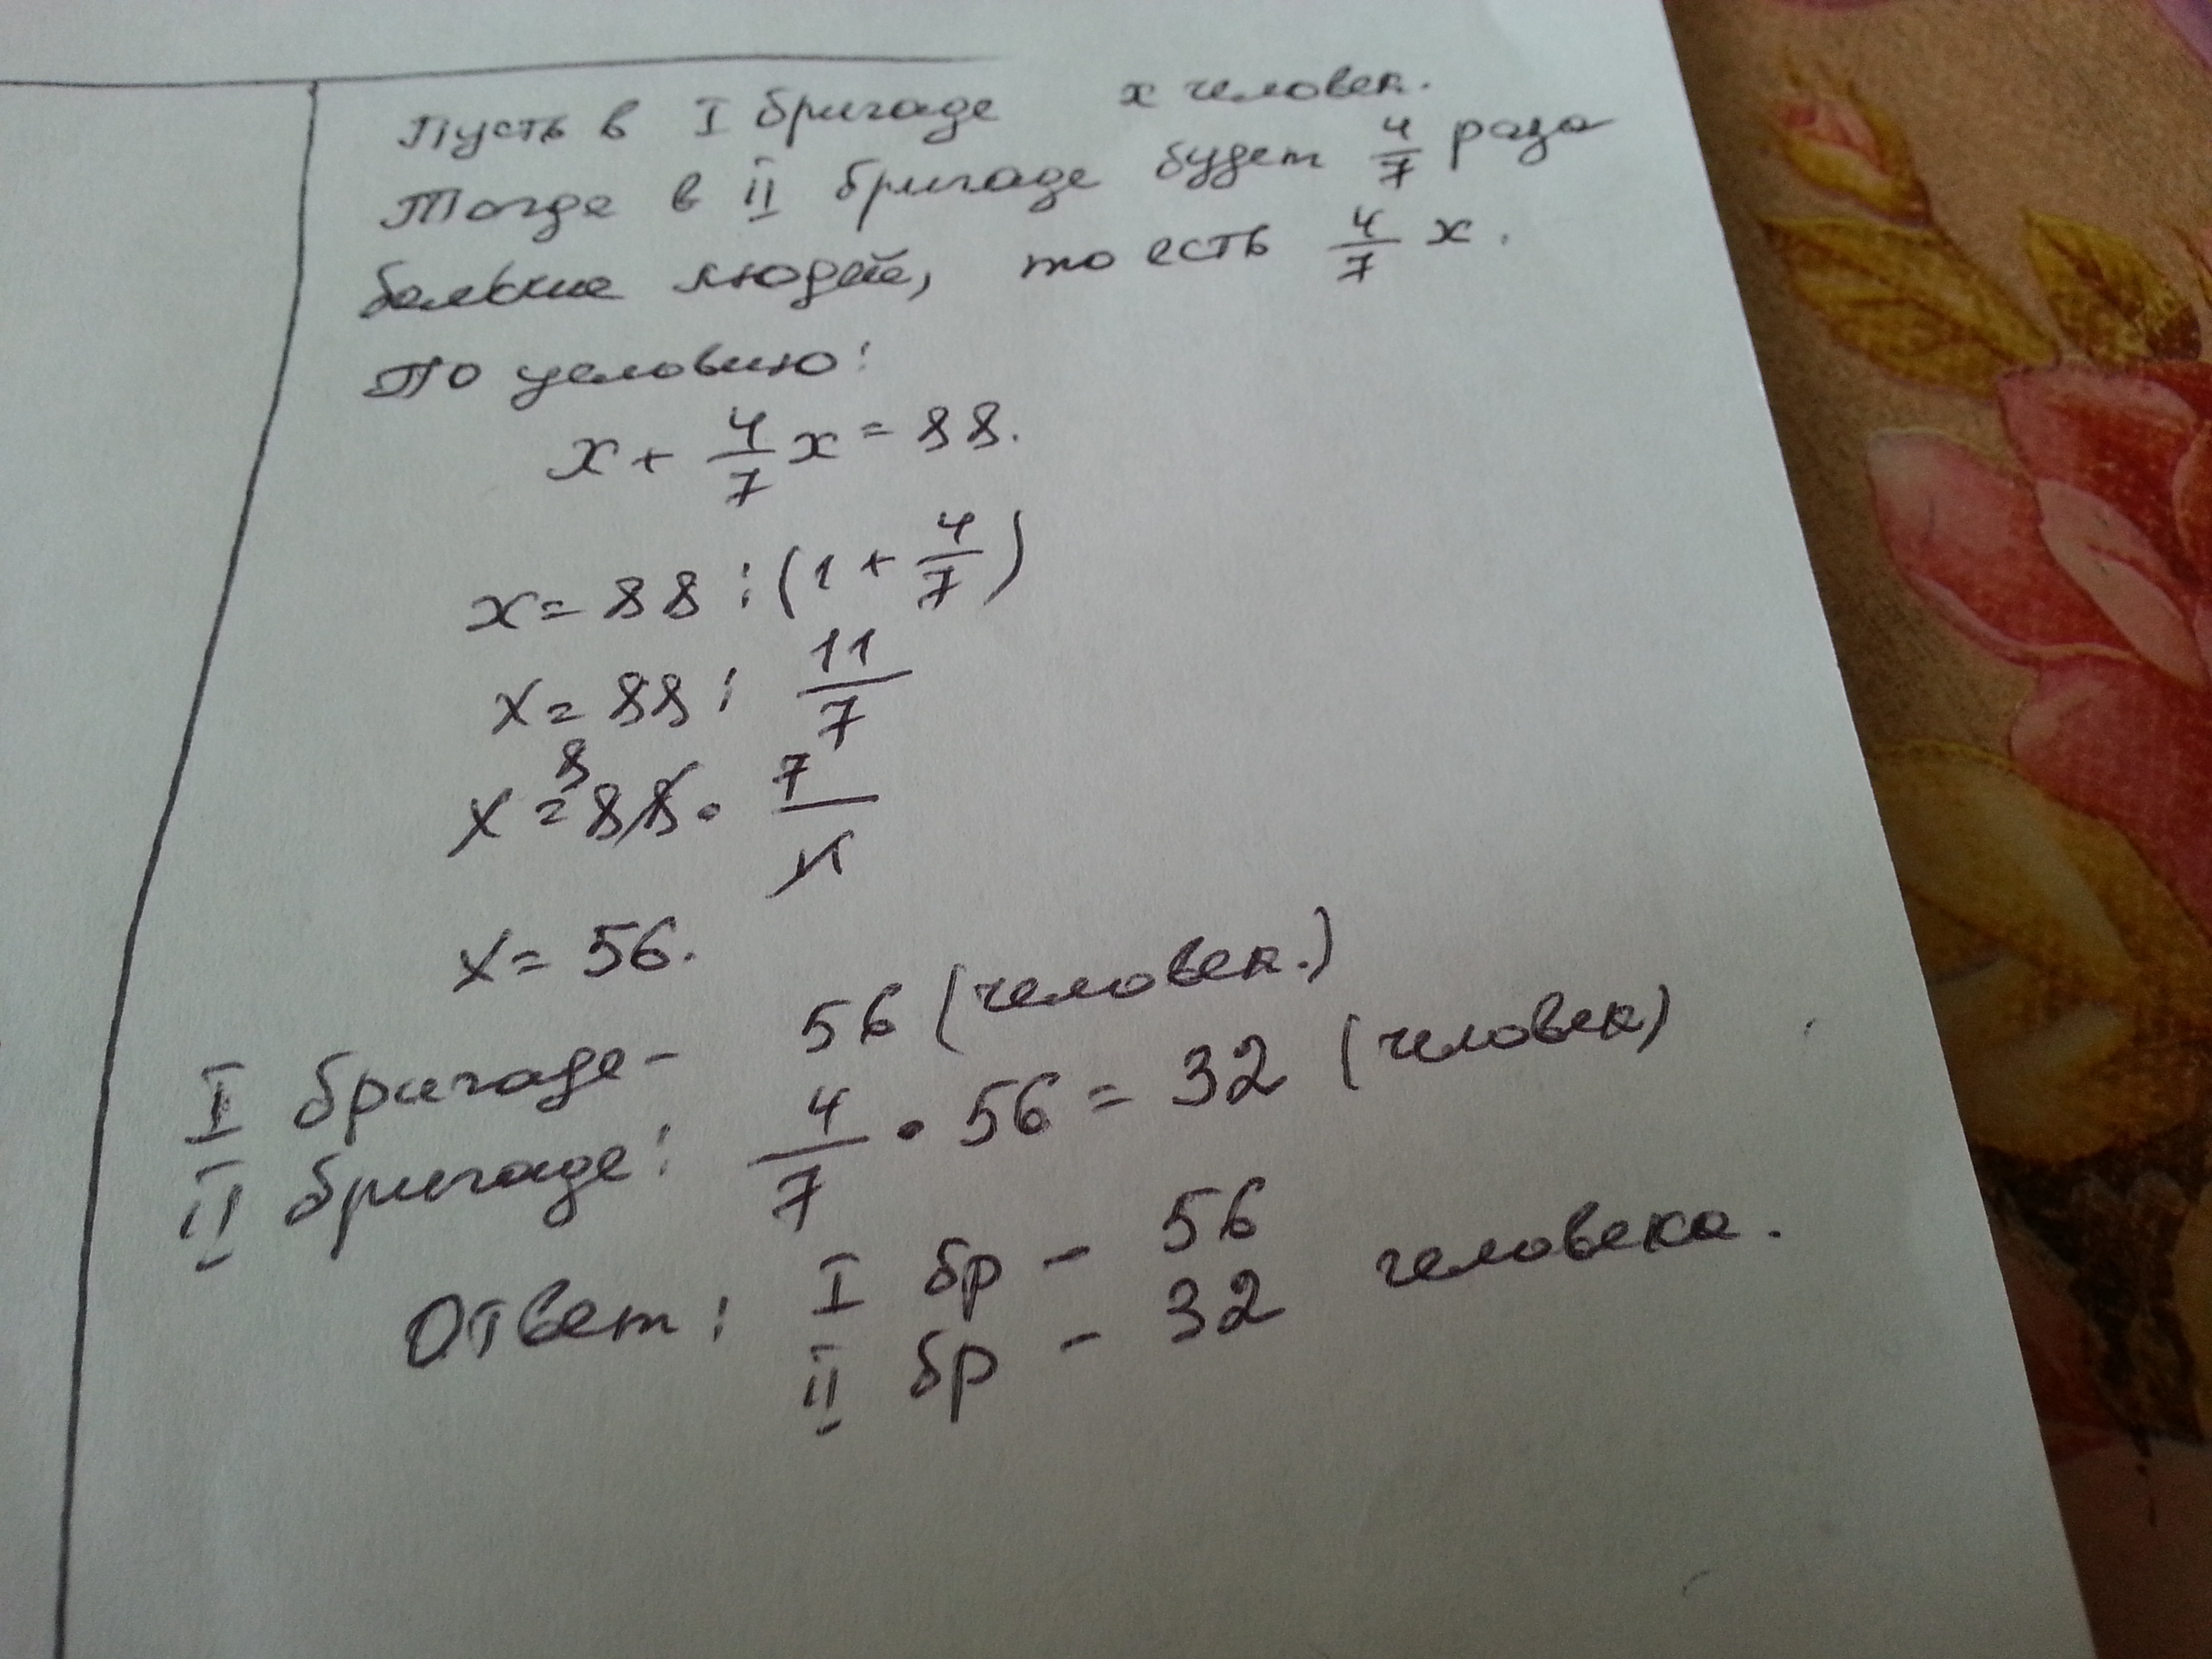 Пусть в I бригаде x человек.
Тогда в II бригаде будет 4/7 раза
больше людей, то есть 4/7 x.
По условию:
x + 4/7 x = 88.
x = 88 : (1 + 4/7)
x = 88 : 11/7
x = 88 · 7/11
8
x = 56.
I бригаде - 56 (человек.)
II бригаде: 4/7 · 56 = 32 (человек)
Ответ: I бр - 56
II бр - 32 человека.